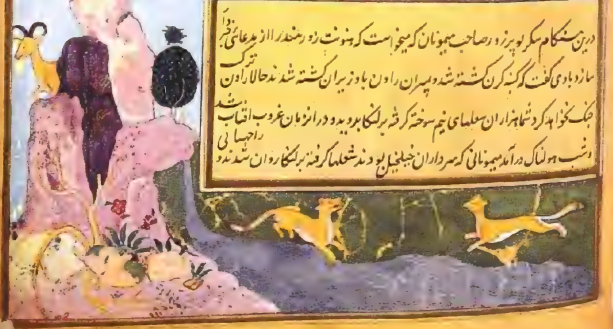 درین هنگام سکریو پر زور صاحب میمونان که میخواست که بنوعی زور مندر را از مدعای
سازد بادی گفت که کنبه کرن کشته شد و پسران راون با وزیران کشته شدند حالا راون
جنک نخواهد کرد شما هزاران شعلهای نیم سوخته گرفته بر لنکا بروید و در انزمان غروب افتاب شد
و شب هولناک درآمد میمونانی که سرداران خیلخیل بودند شعلها گرفته بر لنکا روان شدند و